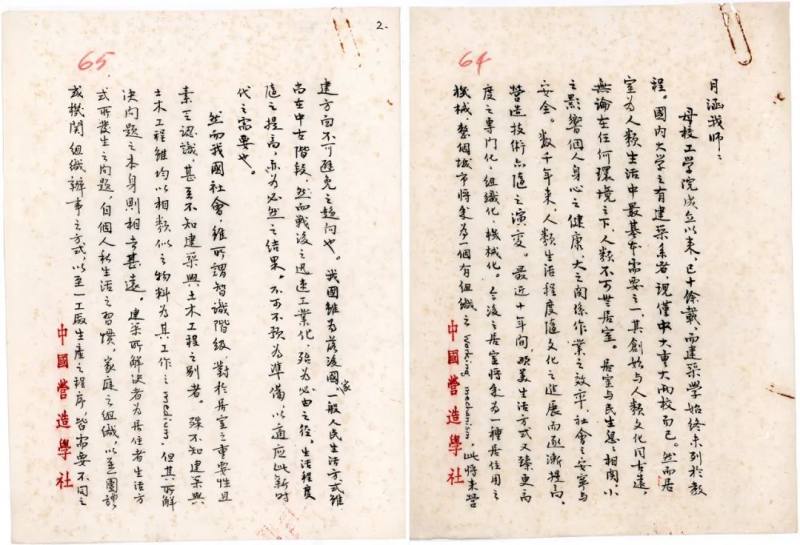 64
月涵我師:
母校工學院成立以來,已十餘載,而建築學始終未列於教
程。國內大學之有建築系者,現僅中大重大兩校而已。然而居
室為人類生活中最基本需要之一,其創始與人類文化同古遠,
無論在任何環境之下,人類不可無居室。居室與民生息息相關,小
之影響個人身心之健康,大之關係作業之效率,社會之安寧與
安全。數千年來,人類生活程度隨文化之進展而逐漸提高,
營造技術亦隨之演變。最近十年間,歐美生活方式又臻更高
度之專門化,組織化,機械化。今後之居室將成為一種居住用之
機械,整個城市將成為一個有組織之 Working mechanism,此將來營
中國營造學社
2.
65
建方面不可避免之趨向也。我國雖為落後國家,一般人民生活方式雖
尚在中古階段,然而戰後之迅速工業化,殆為必由之徑,生活程度
隨之提高,亦為必然之結果。不可不預為準備,以適應此新時
代之需要也。
然而我國社會,雖所謂智識階級,對於居室之重要性且
素乏認識,甚至不知建築與土木工程之別者。殊不知建築與
土木工程雖均以相類似之物料為其工作之medium,但其所解
決問題之本身則相去甚遠。建築所解決者為居住者生活方
式所發生之問題,自個人私生活之習慣,家庭之組織,以至團體
或機関組織辦事之方式,以至一工廠生產之程序,皆需要不同之
中國營造學社